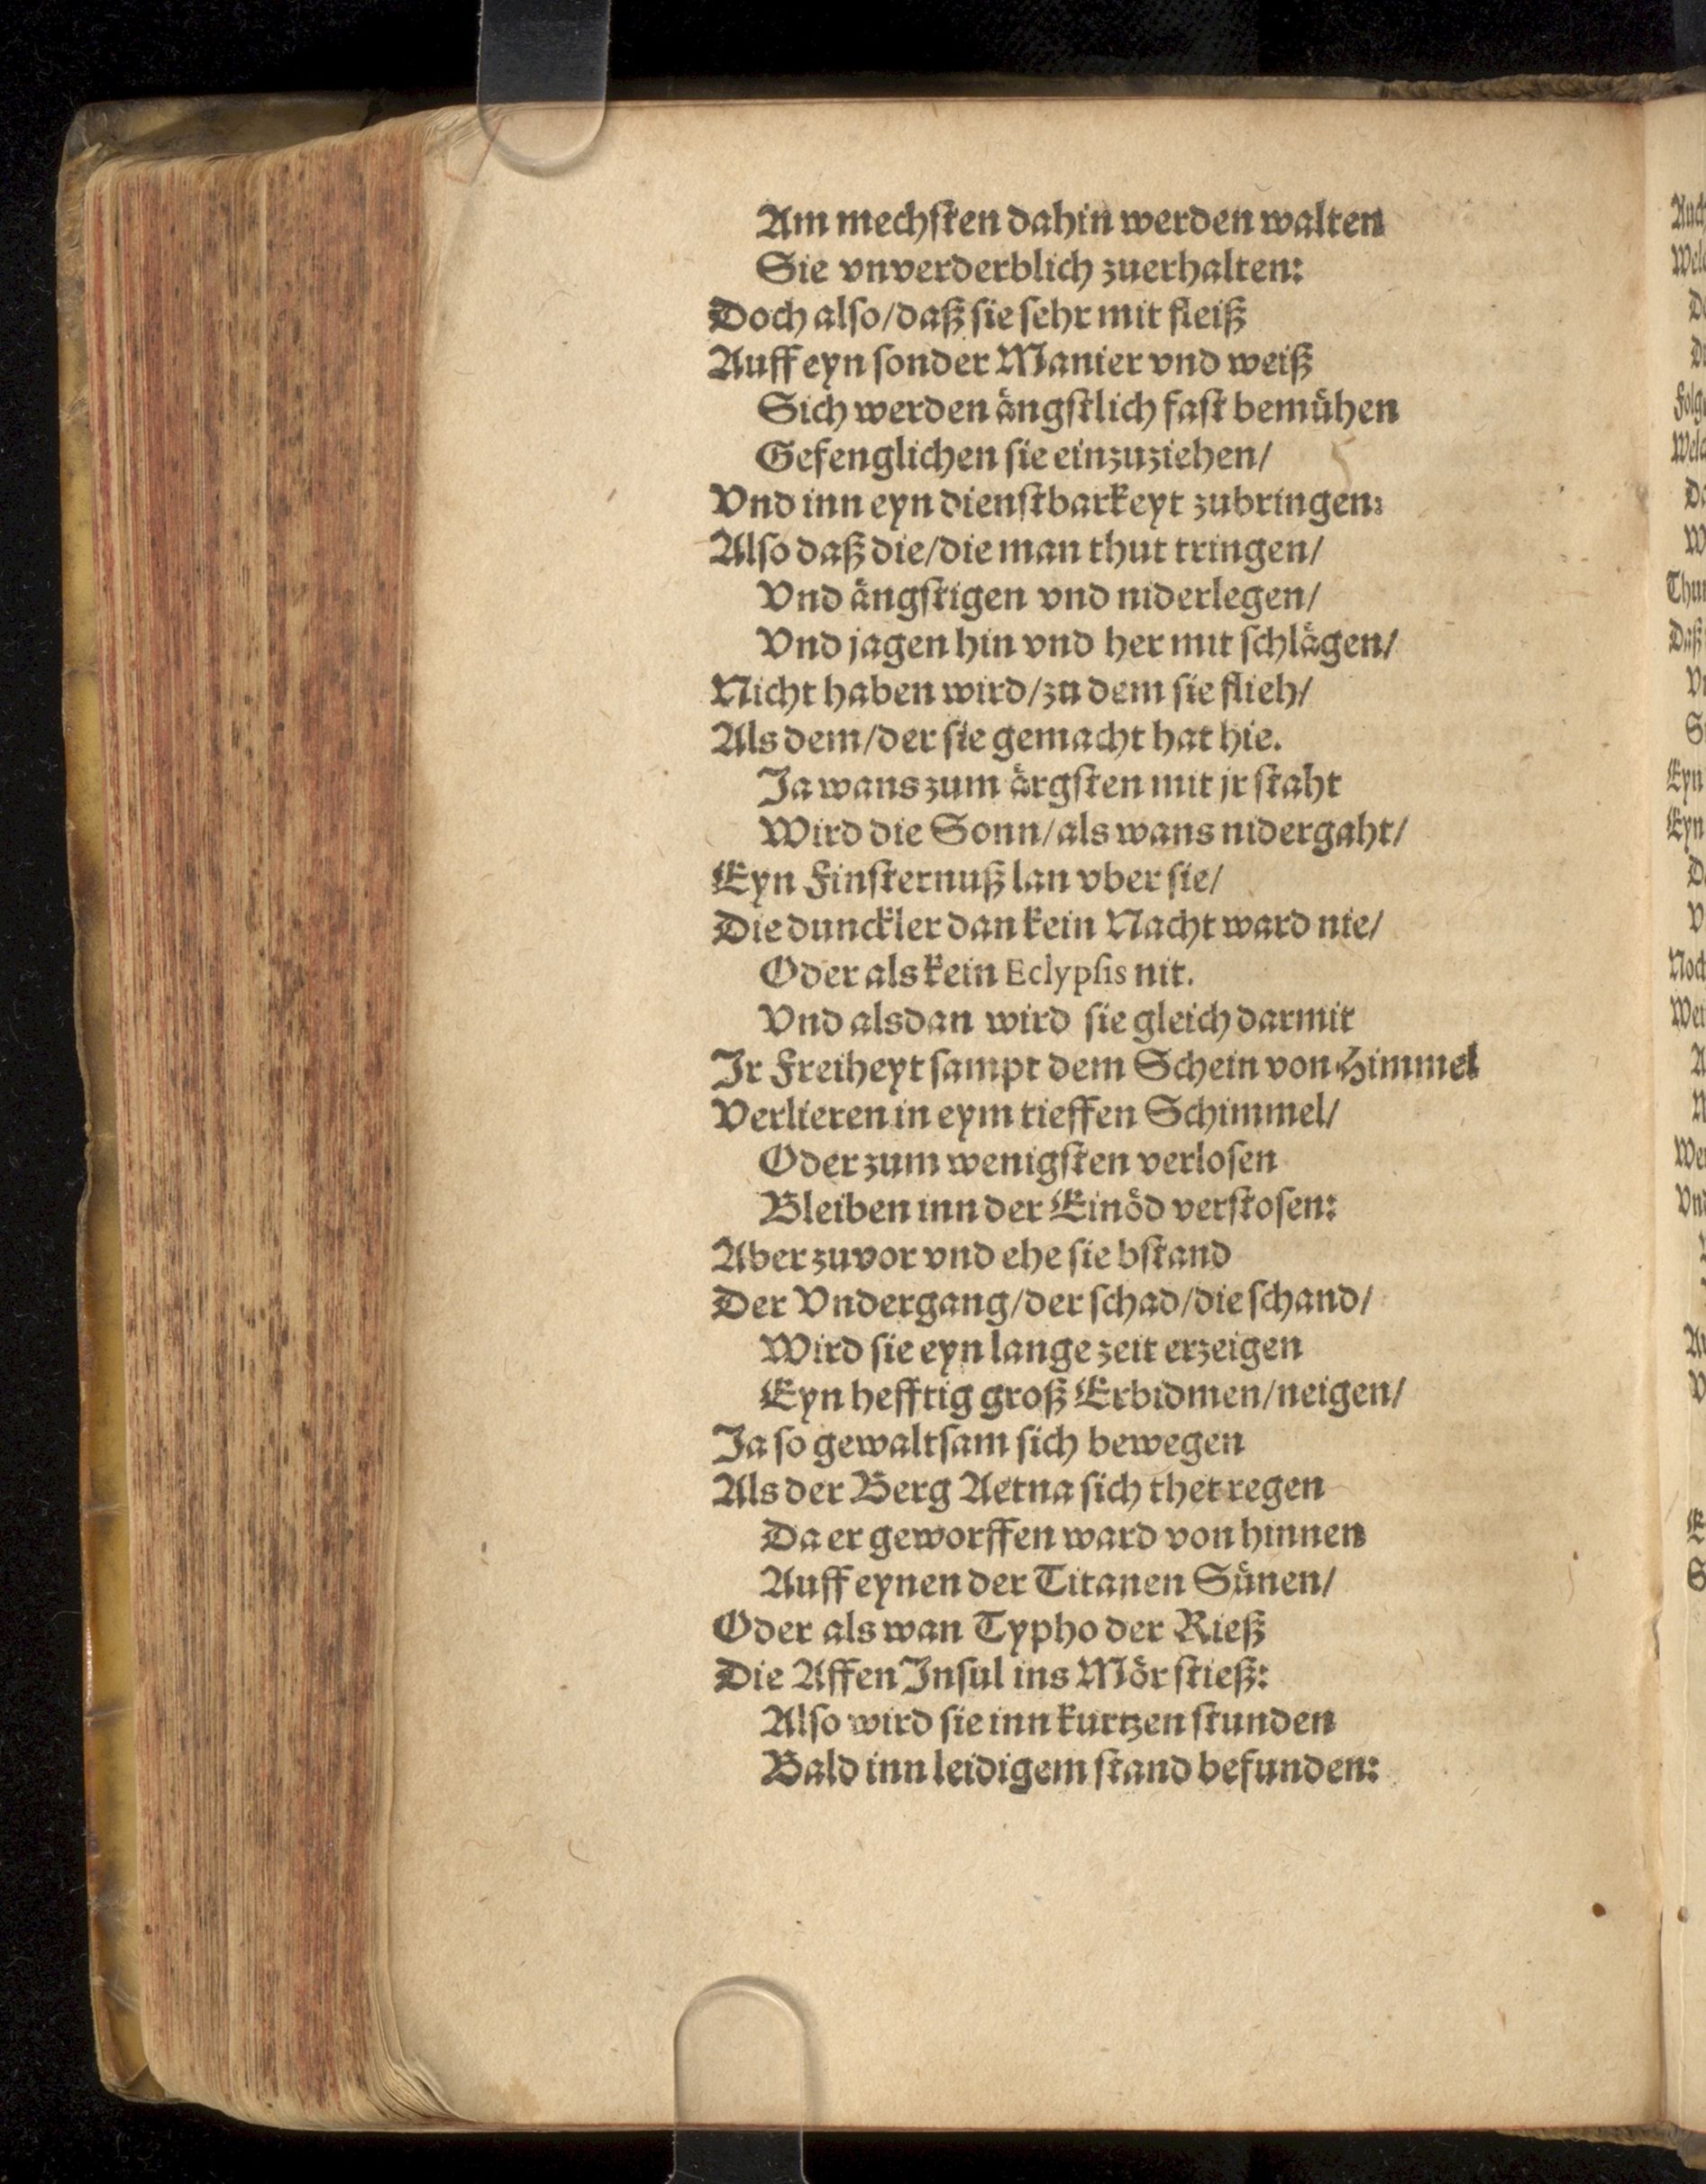 Am mechſten dahin werden walten
Sie vnverderblich zuerhalten:
Doch alſo/daß ſie ſehr mit fleiß
Auff eyn ſonder Manier vnd weiß
Sich werden aͤngſtlich faſt bemuͤhen
Gefenglichen ſie einzuziehen/
Vnd inn eyn dienſtbarkeyt zubringen:
Alſo daß die/die man thut tringen/
Vnd aͤngſtigen vnd niderlegen/
Vnd jagen hin vnd her mit ſchlaͤgen/
Nicht haben wird/zu dem ſie flieh/
Als dem/der ſie gemacht hat hie.
Ja wans zum aͤrgſten mit jr ſtaht
Wird die Sonn/als wans nidergaht/
Eyn Finſternuß lan vber ſie/
Die dunckler dan kein Nacht ward nie/
Oder als kein Eclypſis nit.
Vnd alsdan wird ſie gleich darmit
Jr Freiheyt ſampt dem Schein von Himmel
Verlieren in eym tieffen Schimmel/
Oder zum wenigſten verloſen
Bleiben inn der Einoͤd verſtoſen:
Aber zuvor vnd ehe ſie bſtand
Der Vndergang/der ſchad/die ſchand/
Wird ſie eyn lange zeit erzeigen
Eyn hefftig groß Erbidmen/neigen/
Ja ſo gewaltſam ſich bewegen
Als der Berg Aetna ſich thet regen
Da er geworffen ward von hinnen
Auff eynen der Titanen Suͤnen/
Oder als wan Typho der Rieß
Die Affen Jnſul ins Moͤr ſtieß:
Alſo wird ſie inn kurtzen ſtunden
Bald inn leidigem ſtand befunden: